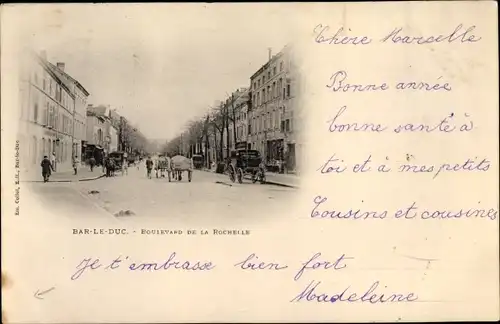 Chère Marcelle,
Bonne année
bonne santé à
toi et à mes petits
Cousins et cousines
Edit. Collot, B.-D., Bar-le-Duc
BAR-LE-DUC. - BOULEVARD DE LA ROCHELLE
Je t'embrasse bien fort
Madeleine